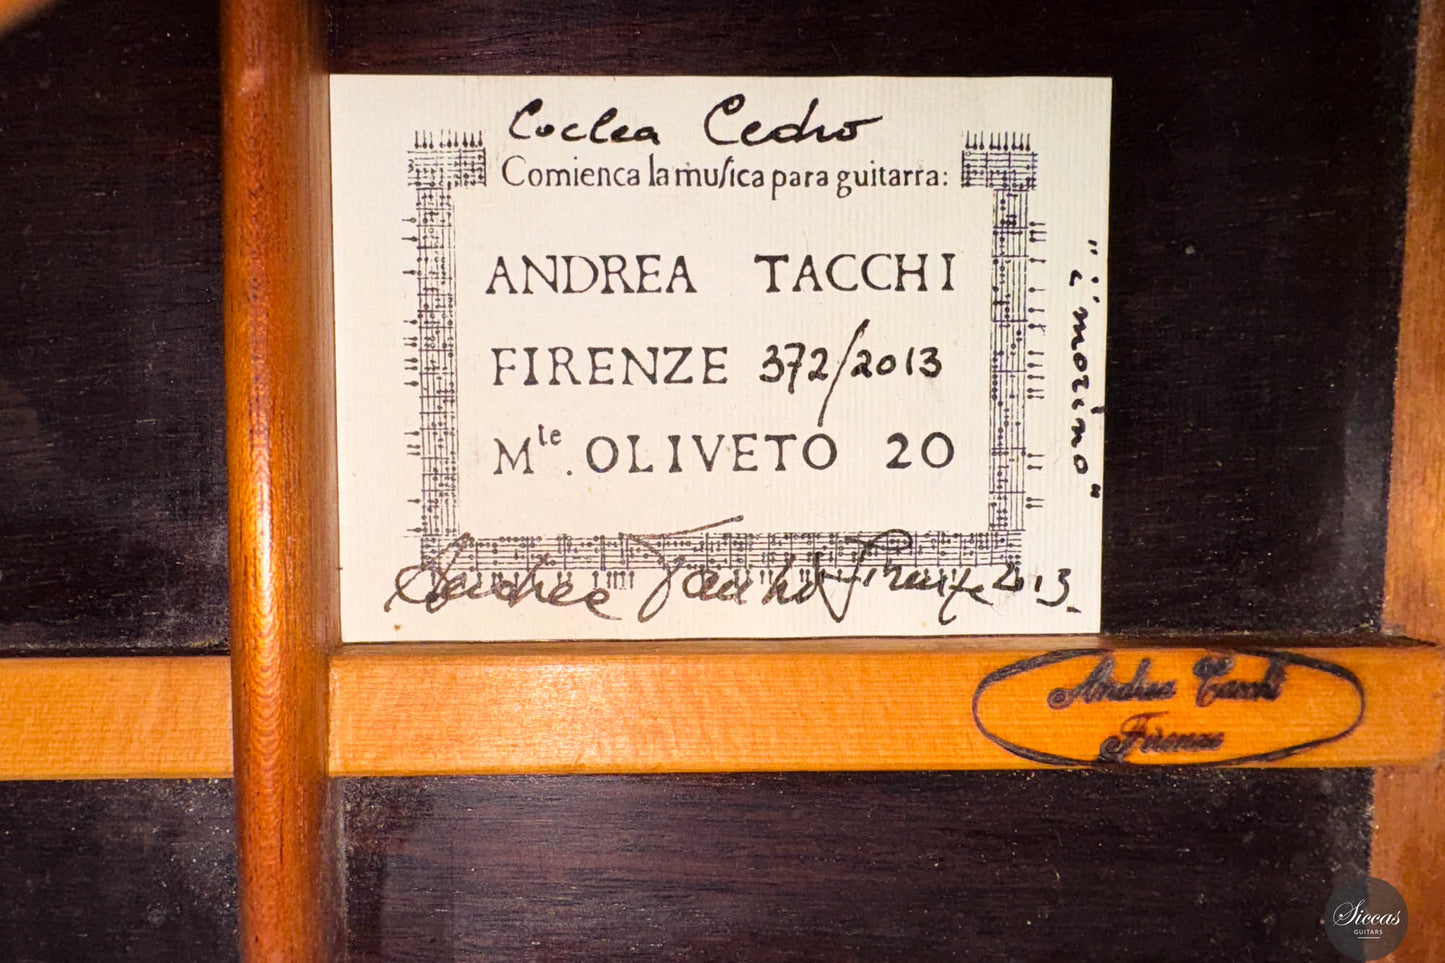 Coclea Cedro
Comienca la muſica para guitarra:
ANDREA TACCHI
FIRENZE 372/2013
Mte. OLIVETO 20
Andrea Tacchi Firenze 2013.
"i' morino"
Andrea Tacchi
Firenze
Siccas
GUITARS